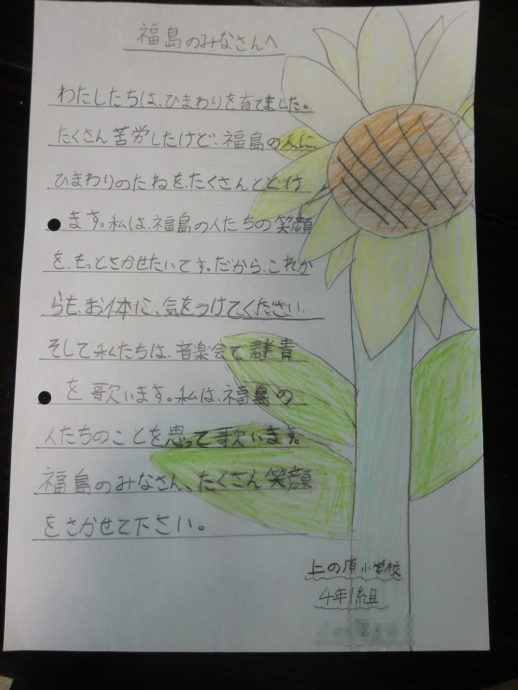 福島のみなさんへ
わたしたちは、ひまわりを育てました。
たくさん苦労したけど、福島の人に、
ひまわりのたねを、たくさんとどけ
ます。私は、福島の人たちの笑顔
を、もっとさかせたいです。だから、これか
らも、お体に、気をつけてください。
そして私たちは、音楽会で群青
を歌います。私は、福島の
人たちのことを思って歌います。
福島のみなさん、たくさん笑顔
をさかせて下さい。
上の原小学校
4年1組